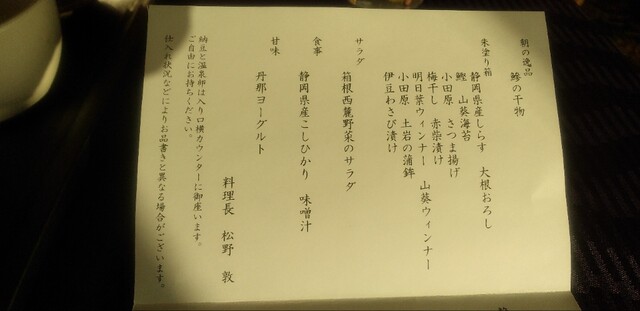 朝の逸品
鯵の干物
朱塗り箱
静岡県産しらす　大根おろし
鰹　山葵海苔
小田原　さつま揚げ
梅干し　赤柴漬け
明日葉ウィンナー　山葵ウィンナー
小田原　土岩の蒲鉾
伊豆わさび漬け
サラダ
箱根西麓野菜のサラダ
食事
静岡県産こしひかり　味噌汁
甘味
丹那ヨーグルト
料理長　松野　敦
納豆と温泉卵は入り口横カウンターに御座います。
ご自由にお持ちください。
仕入れ状況などによりお品書きと異なる場合がございます。